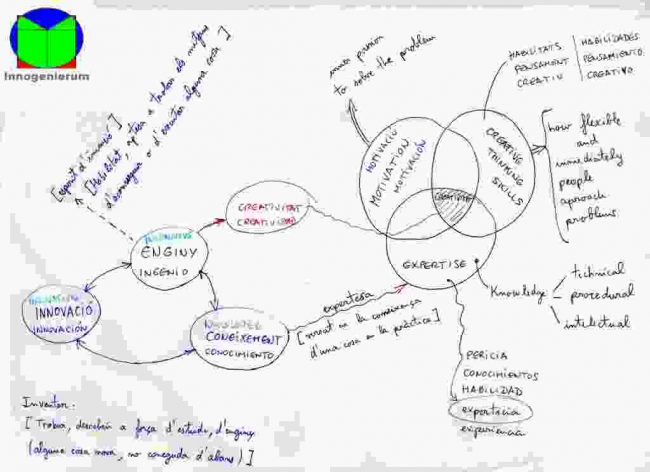 Innogenierum
inner passion
to solve the problem
HABILITATS
PENSAMENT
CREATIU
HABILIDADES
PENSAMIENTO
CREATIVO
[esperit d'invenció]
[Habilitat, aptesa a trobar els mitjans
d'aconseguir o d'executar alguna cosa]
MOTIVACIÓ
MOTIVATION
MOTIVACIÓN
CREATIVE
THINKING
SKILLS
how flexible
and
immediately
people
approach
problems
CREATIVITAT
CREATIVIDAD
ENGINY
INGENIO
EXPERTISE
Knowledge
technical
procedural
intelectual
INNOVACIÓ
INNOVACIÓN
KNOWLEDGE
CONEIXEMENT
CONOCIMIENTO
expertesa
[versat en la coneixença
d'una cosa en la pràctica]
PERICIA
CONOCIMIENTOS
HABILIDAD
experticia
experiencia
Inventar:
[Trobar, descobrir a força d'estudi, d'enginy
(alguna cosa nova, no coneguda d'abans)]